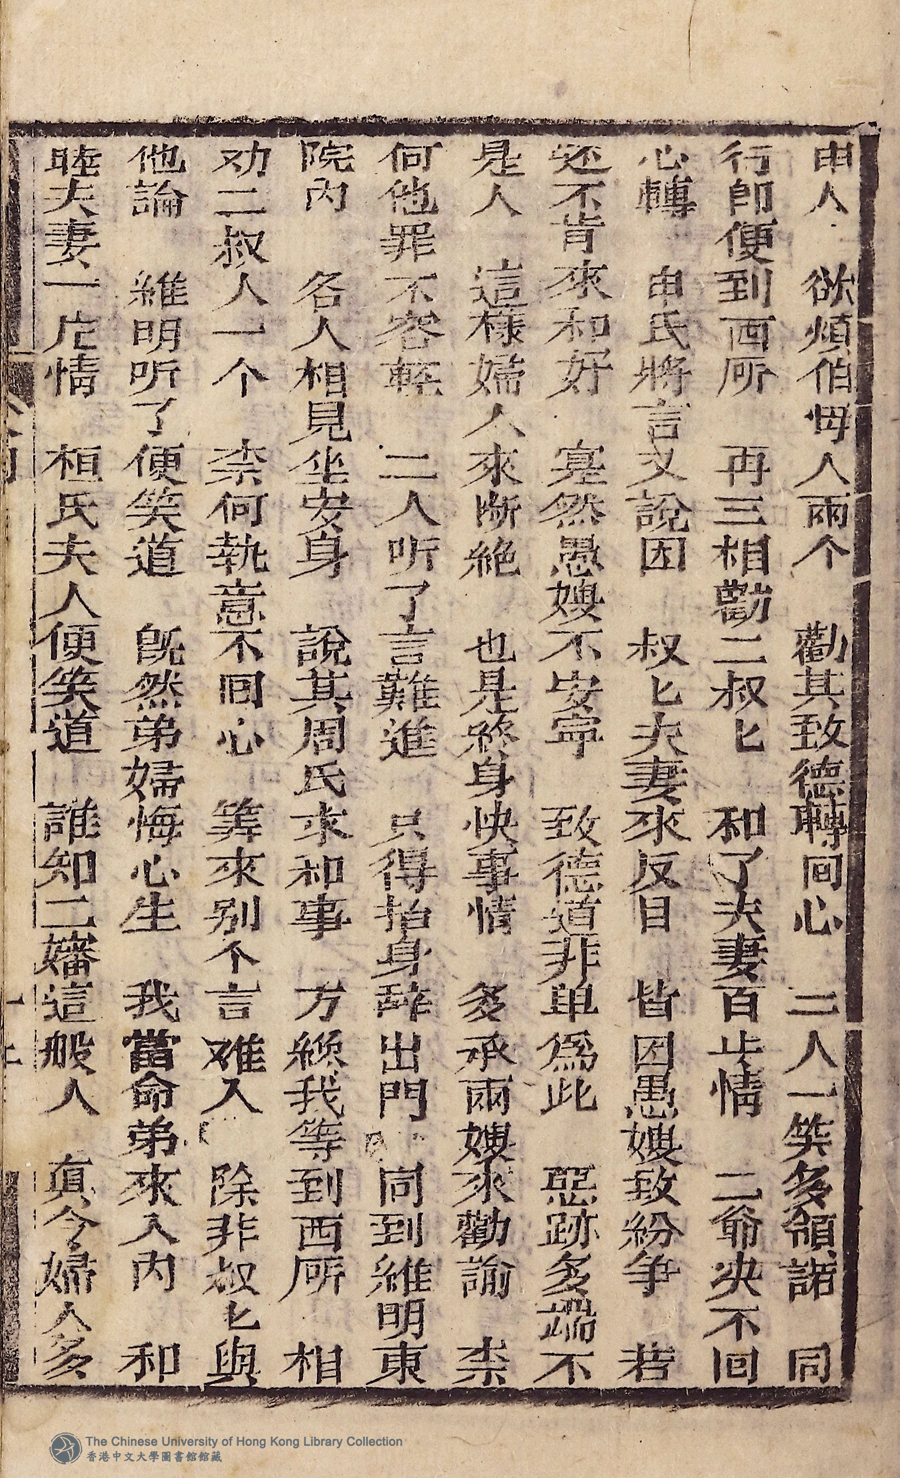 申人　欲煩伯母人兩个　勸其致德轉回心　二人一笑多領諾　同
行即便到西所　再三相勸二叔匕　和了夫妻百止情　二爺决不回
心轉　申氏將言又說因　叔匕夫妻來反目　皆因愚嫂致紛争　若
还不肯來和好　寔然愚嫂不安寕　致德道非单為此　惡跡多端不
是人　這樣婦人來断絶　也是終身快事情　多承兩嫂來勸諭　柰
何他罪不容輕　二人听了言難進　只得抬身辞出門　同到維明東
院內　各人相見坐安身　說其周氏求和事　方纔我等到西所　相
劝二叔人一个　柰何執意不回心　筭來别个言难入　除非叔匕與
他論　維明听了便笑道　旣然弟婦悔心生　我當命弟來入內　和
睦夫妻一片情　桓氏夫人便笑道　誰知二嬸這般人　真今婦人多
The Chinese University of Hong Kong Library Collection
香港中文大學圖書館館藏